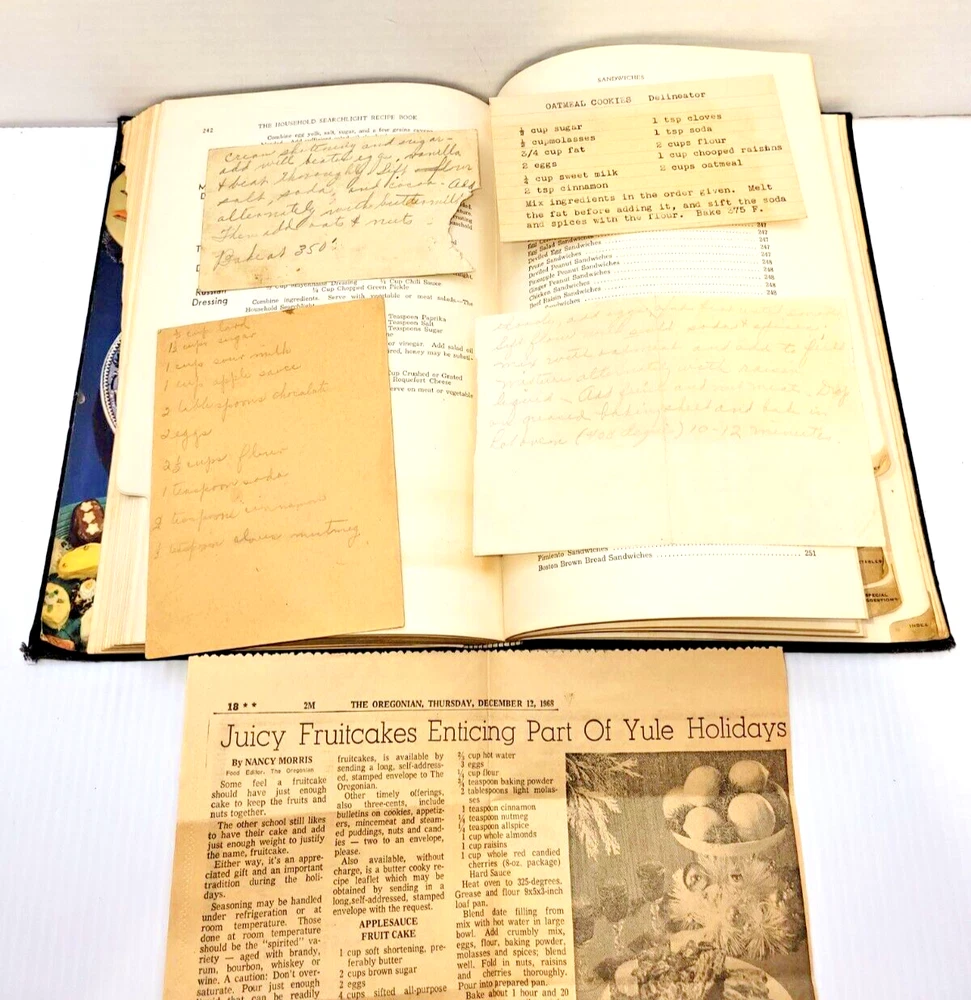 242 THE HOUSEHOLD SEARCHLIGHT RECIPE BOOK
Combine egg yolk, salt, sugar, and a few grains cayenne
Cream shortening and sugar-
add with beaten egg, vanilla
& beat thoroughly. Sift flour
salt, soda, and cocoa. Add
alternately with buttermilk
Then add oats & nuts
Bake at 350°
Russian
Dressing
½ Cup Chili Sauce
¼ Cup Chopped Green Pickle
Combine ingredients. Serve with vegetable or meat salads.—The
Household Searchlight
Teaspoon Paprika
Teaspoon Salt
Teaspoons Sugar
or vinegar. Add salad oil
red, honey may be substi-
Cup Crushed or Grated
Roquefort Cheese
erve on meat or vegetable
½ cup lard
1½ cups sugar
1 cup sour milk
1 cup apple sauce
2 tablespoons chocolate
2 eggs
2½ cups flour
1 teaspoon soda
2 teaspoons cinnamon
teaspoon cloves nutmeg
SANDWICHES
OATMEAL COOKIES Delineator
½ cup sugar
½ cupmolasses
3/4 cup fat
2 eggs
¼ cup sweet milk
2 tsp cinnamon
1 tsp cloves
1 tsp soda
2 cups flour
1 cup chooped raisins
2 cups oatmeal
Mix ingredients in the order given. Melt
the fat before adding it, and sift the soda
and spices with the flour. Bake 275 F.
Egg Salad Sandwiches 247
Deviled Egg Sandwiches 247
Prune Sandwiches 247
Deviled Peanut Sandwiches 247
Pineapple Peanut Sandwiches 248
Ginger Peanut Sandwiches 248
Chicken Sandwiches 248
Beef Raisin Sandwiches 248
Sandwiches
liquid. Add
greased baking sheet and bake in
(400 degrees) 10-12 minutes.
Pimiento Sandwiches
Boston Brown Bread Sandwiches 251
INDEX
18 ** 2M THE OREGONIAN, THURSDAY, DECEMBER 12, 1968
Juicy Fruitcakes Enticing Part Of Yule Holidays
By NANCY MORRIS
Food Editor, The Oregonian
Some feel a fruitcake
should have just enough
cake to keep the fruits and
nuts together.
The other school still likes
to have their cake and add
just enough weight to justify
the name, fruitcake.
Either way, it's an appre-
ciated gift and an important
tradition during the holi-
days.
Seasoning may be handled
under refrigeration or at
room temperature. Those
done at room temperature
should be the "spirited" va-
riety — aged with brandy,
rum, bourbon, whiskey or
wine. A caution: Don't over-
saturate. Pour just enough
liquid that can be readily
fruitcakes, is available by
sending a long, self-address-
ed, stamped envelope to The
Oregonian.
Other timely offerings,
also three-cents, include
bulletins on cookies, appetiz-
ers, mincemeat and steam-
ed puddings, nuts and cand-
ies — two to an envelope,
please.
Also available, without
charge, is a butter cooky re-
cipe leaflet which may be
obtained by sending in a
long,self-addressed, stamped
envelope with the request.
APPLESAUCE
FRUIT CAKE
1 cup soft shortening, pre-
ferably butter
2 cups brown sugar
2 eggs
4 cups sifted all-purpose
⅔ cup hot water
3 eggs
¼ cup flour
¾ teaspoon baking powder
2 tablespoons light molas-
ses
1 teaspoon cinnamon
¼ teaspoon nutmeg
¼ teaspoon allspice
1 cup whole almonds
1 cup raisins
1 cup whole red candied
cherries (8-oz. package)
Hard Sauce
Heat oven to 325-degrees.
Grease and flour 9x5x3-inch
loaf pan.
Blend date filling from
mix with hot water in large
bowl. Add crumbly mix,
eggs, flour, baking powder,
molasses and spices; blend
well. Fold in nuts, raisins
and cherries thoroughly.
Pour into prepared pan.
Bake about 1 hour and 20